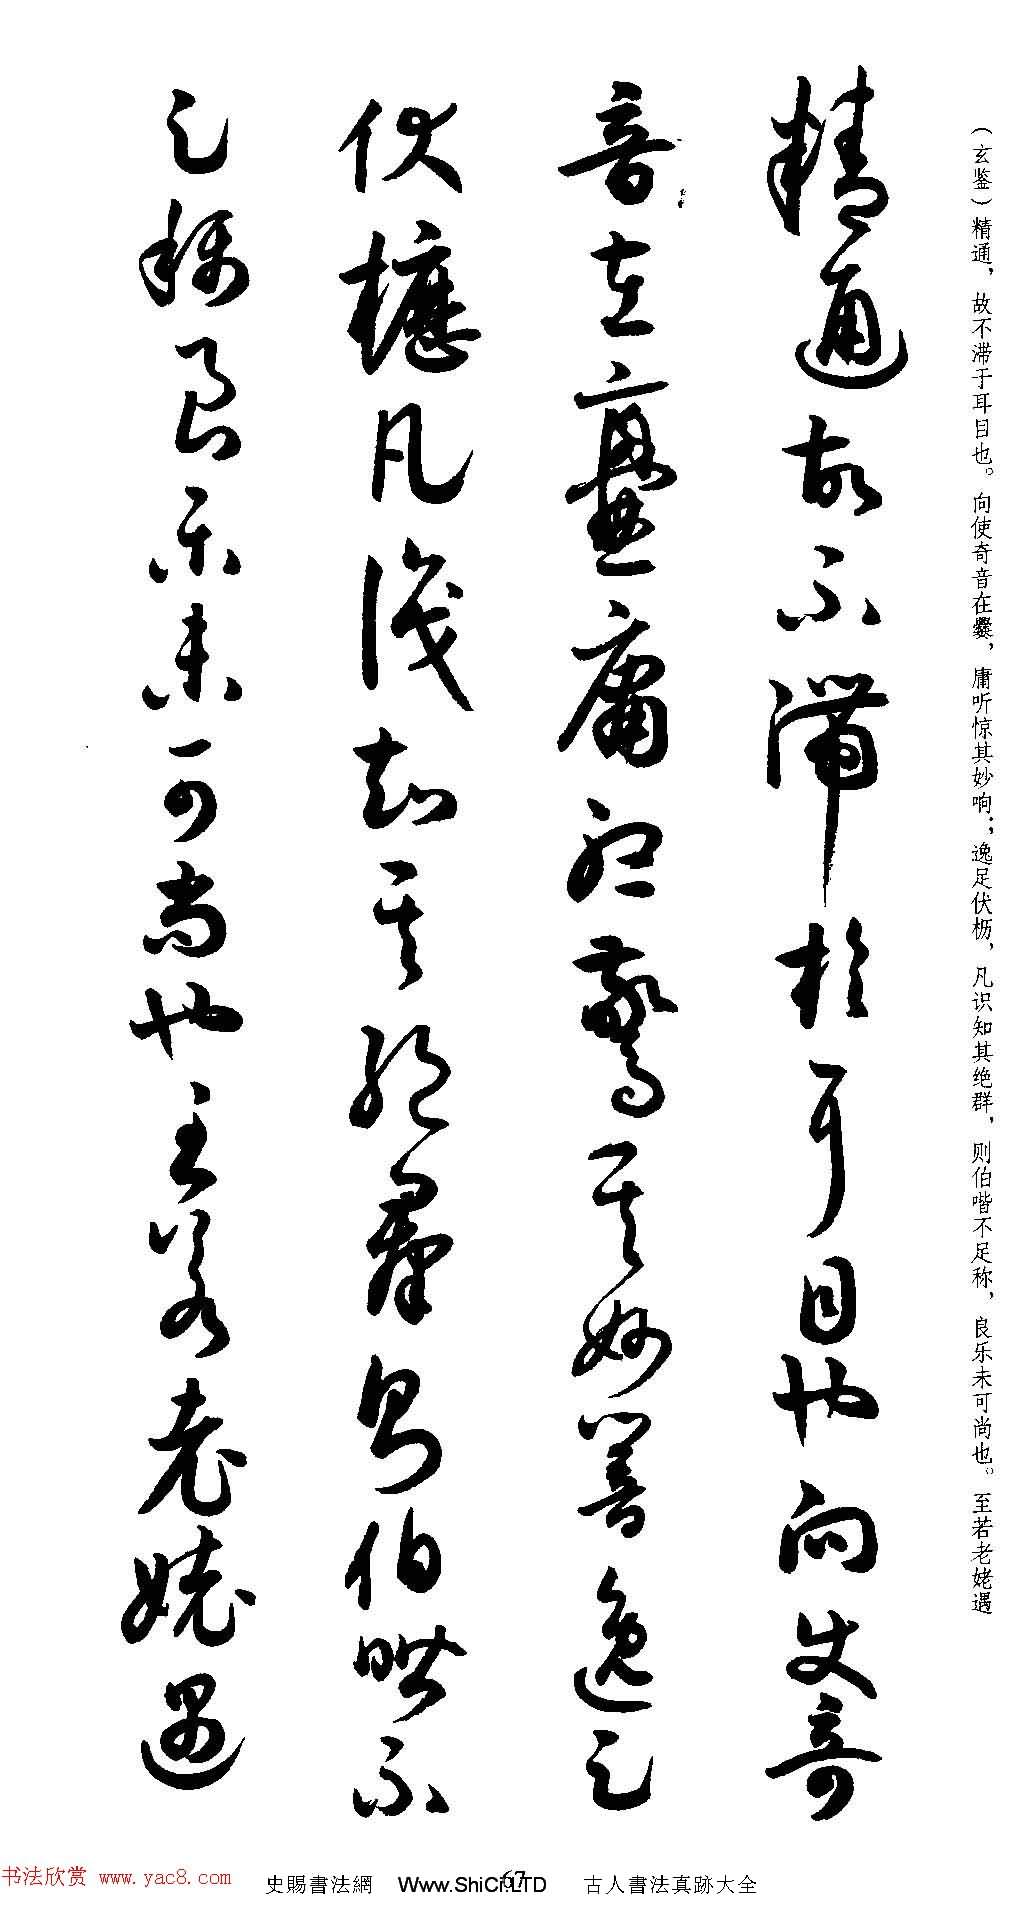 (玄鉴)精通，故不滞于耳目也。向使奇音在爨，庸听惊其妙响；逸足伏枥，凡识知其绝群，则伯喈不足称，良乐未可尚也。至若老姥遇
精通故不滯於耳目也向使奇
音在爨庸聽驚其妙響逸足
伏櫪凡識知其絕群則伯喈不
足稱良樂未可尚也至若老姥遇
书法欣赏 www.yac8.com
史賜書法網 Www.ShiCi.LTD 古人書法真跡大全
67